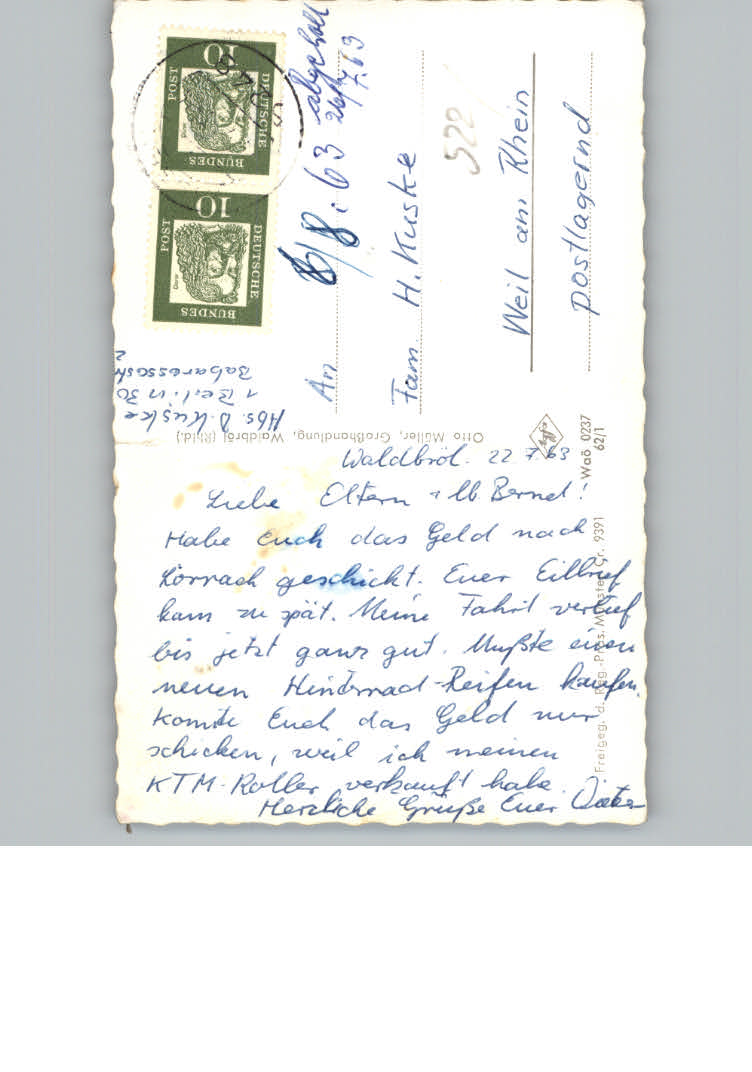 Waldbröl. 22.7.63
Liebe Eltern + lb Bernd!
Habe Euch das Geld nach
Lörrach geschickt. Euer Eilbrief
kam zu spät. Meine Fahrt verlief
bis jetzt ganz gut. Mußte einen
neuen Hinterrad-Reifen kaufen.
Konnte Euch das Geld nur
schicken, weil ich meinen
KTM-Roller verkauft habe.
Herzliche Grüße Euer Dieter
An
Fam. H. Kuske
Weil am Rhein
postlagernd
522
8/8.63
7.63
Abs. D. Kuske
1 Berlin 30
2
Otto Müller, Großhandlung, Waldbröl (Rhld.)
Waö 0237
62/1
Freigeg. d. Reg.-Präs. Münster Gr. 9391
DEUTSCHE
BUNDES
POST
10
DEUTSCHE
BUNDES
POST
10